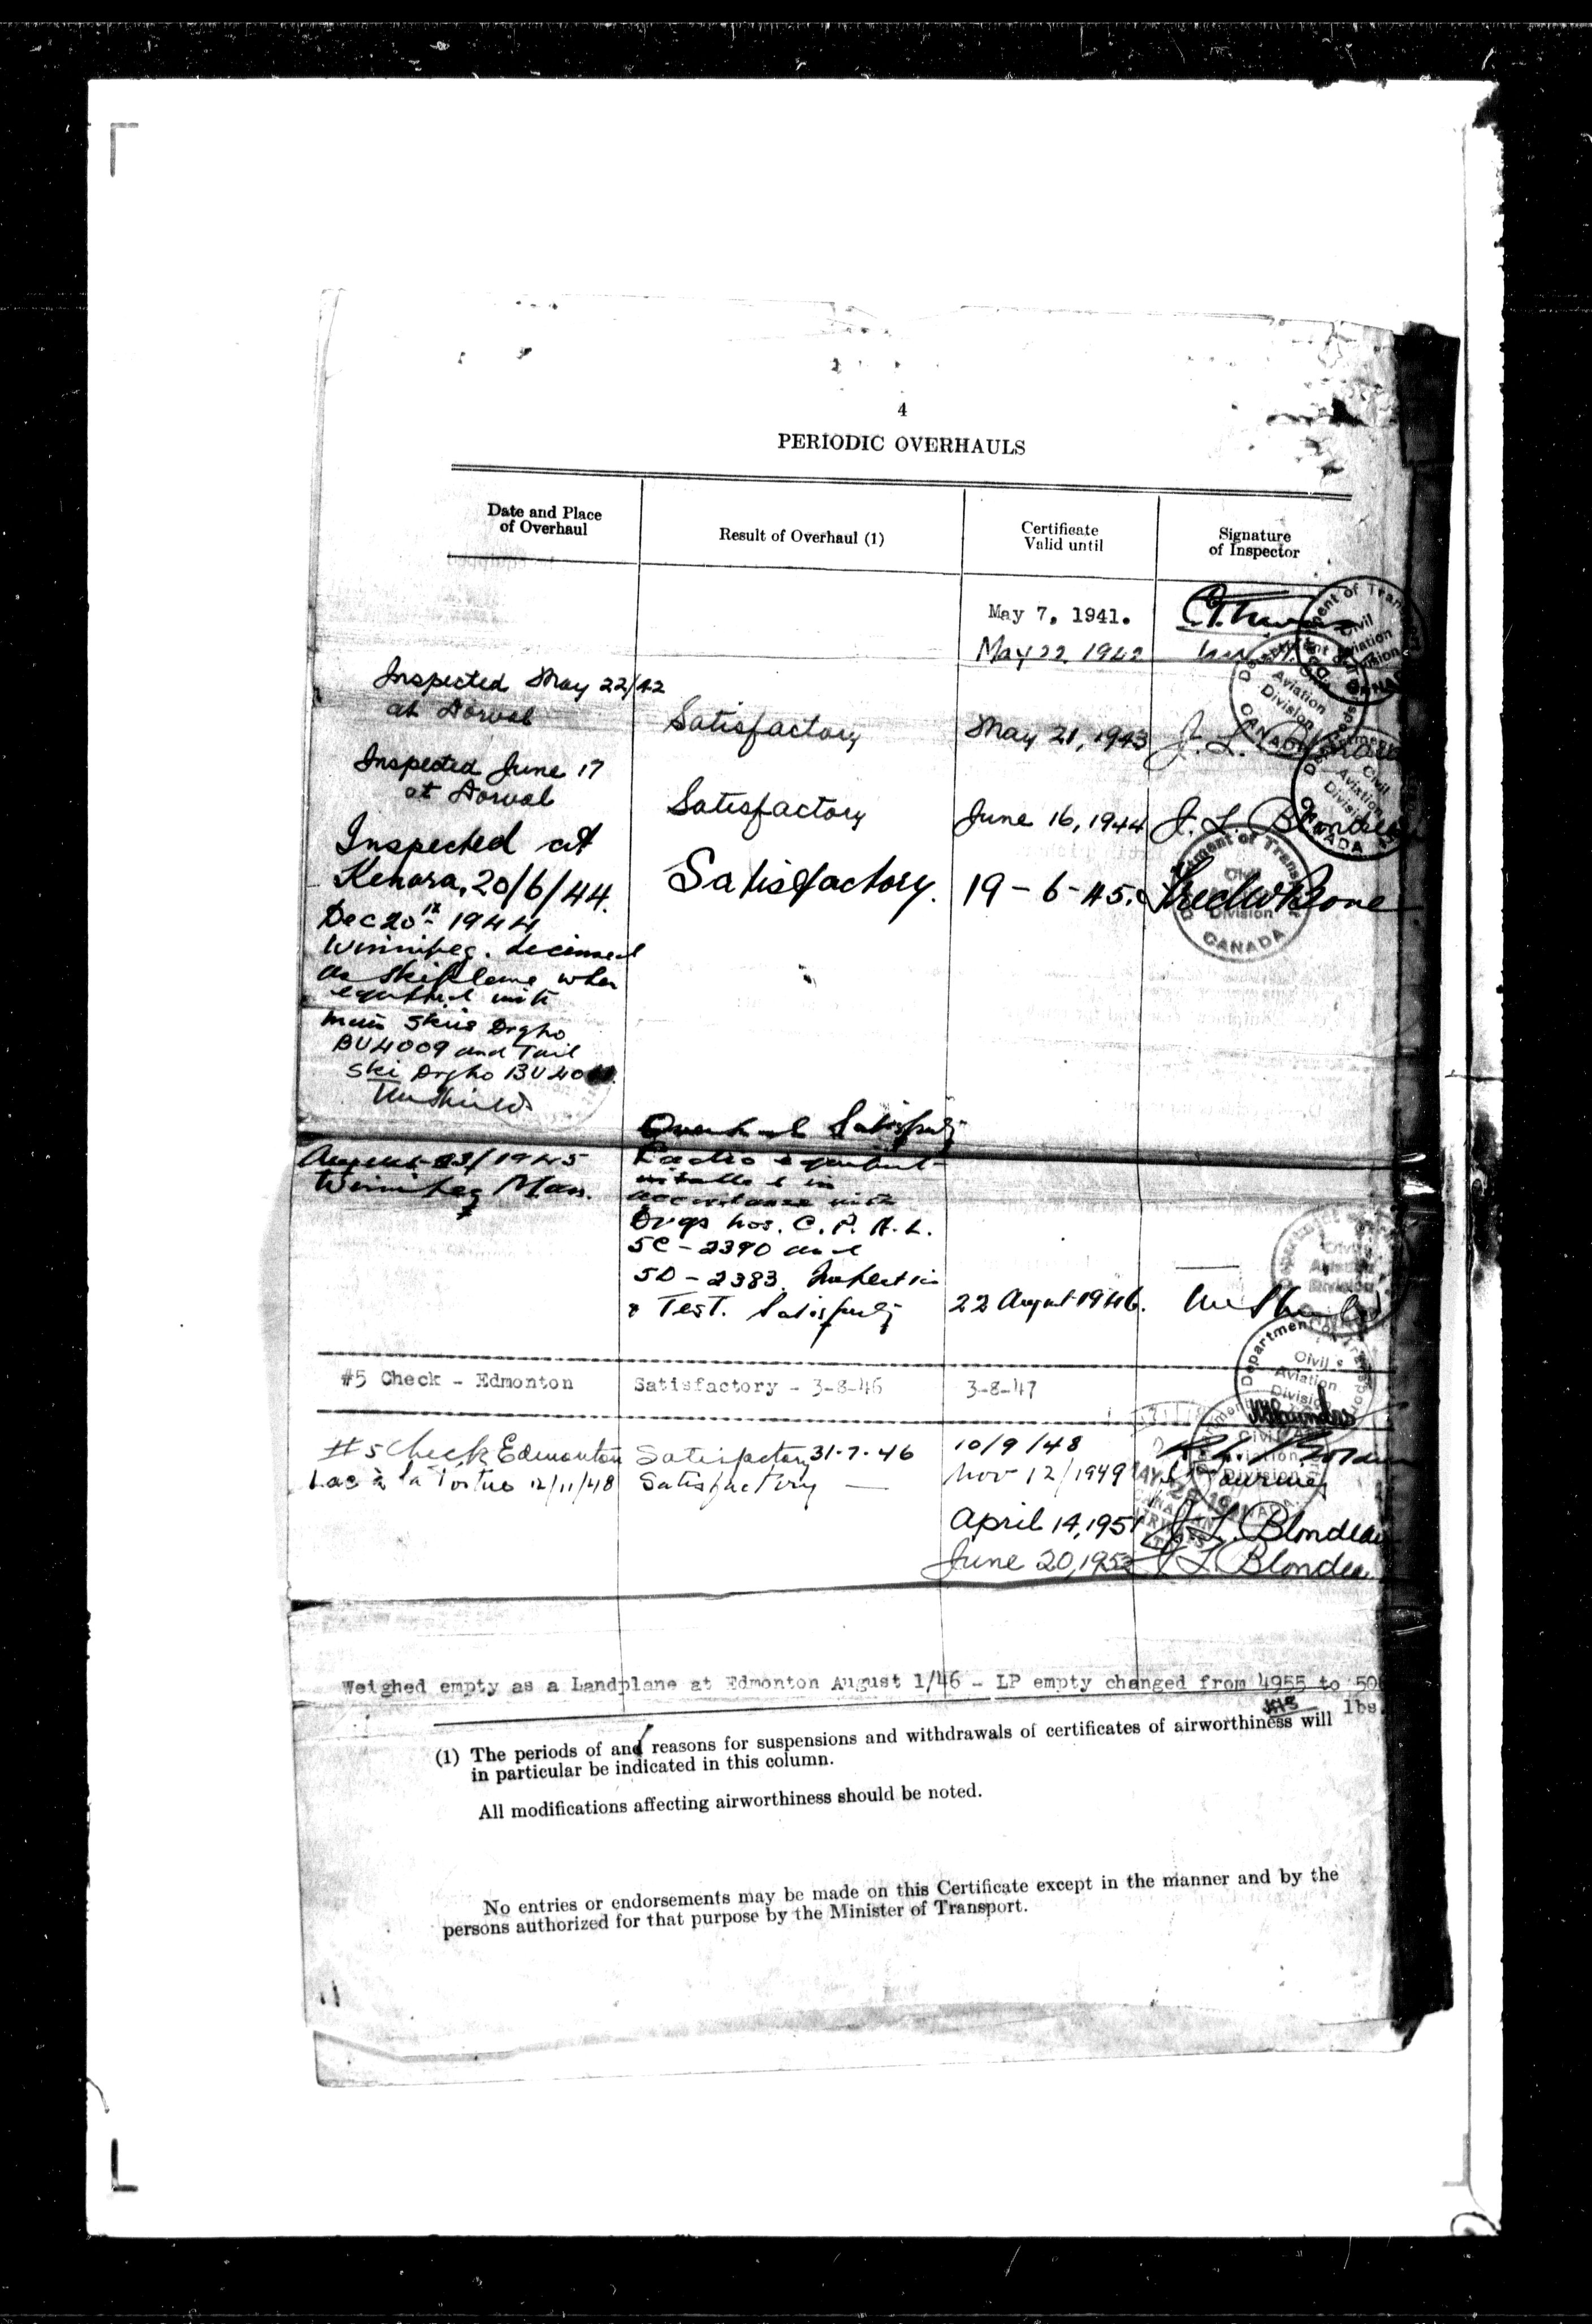 4
PERIODIC OVERHAULS
Date and Place
of Overhaul
Result of Overhaul (1)
Certificate
Valid until
Signature
of Inspector
May 7, 1941.
May 22, 1942
Inspected May 22/42
at Dorval
Satisfactory
May 21, 1943
J. L.
Inspected June 17
at Dorval
Satisfactory
June 16, 1944
J. L. Blondeau
Inspected at
Kenora, 20/6/44.
Satisfactory.
19-6-45.
Dec 20th 1944
Winnipeg. Licensed
as skiplane when
equipped with
main skis Drg no
BU4009 and Tail
ski Drg no BU40
August 23/1945
Winnipeg Man.
Overhaul Satisfactory
Radio equipment
installed in
accordance with
Drgs nos. C.P.A.L.
5C-2390 and
5D-2383. Inspection
& Test. Satisfactory
22 August 1946.
#5 Check - Edmonton
Satisfactory - 3-8-46
3-8-47
#5 Check Edmonton
Satisfactory 31-7-46
10/9/48
Lac à la Tortue 12/11/48
Satisfactory —
Nov 12/1949
April 14, 1951
J. L. Blondeau
June 20, 1952
J L Blondea
Weighed empty as a Landplane at Edmonton August 1/46 - LP empty changed from 4955 to 50
lbs.
(1) The periods of and reasons for suspensions and withdrawals of certificates of airworthiness will
in particular be indicated in this column.
All modifications affecting airworthiness should be noted.
No entries or endorsements may be made on this Certificate except in the manner and by the
persons authorized for that purpose by the Minister of Transport.